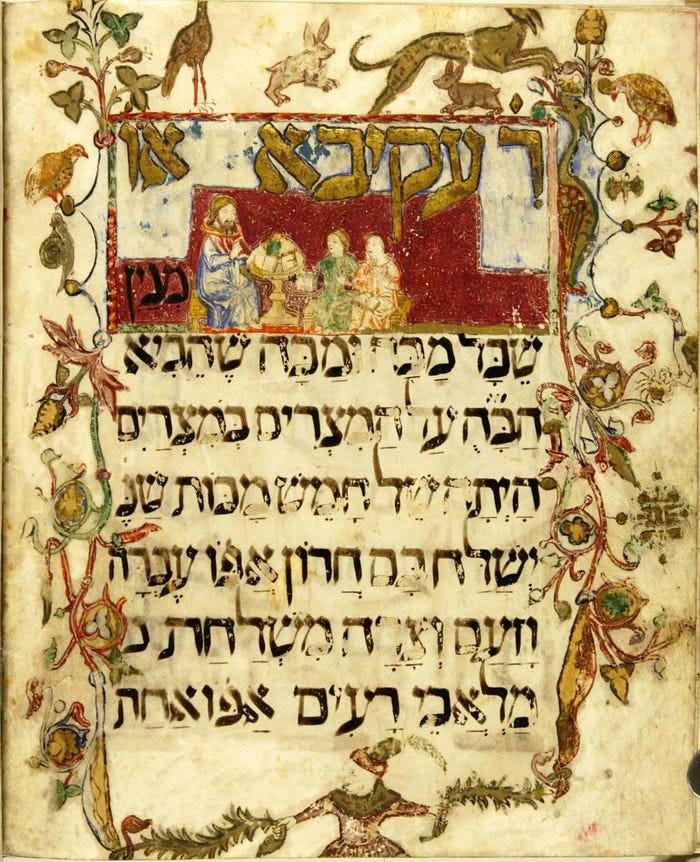 ר׳ עקיבא או
מנין
שֶׁכָּל מַכָּה וּמַכָּה שֶׁהֵבִיא
הב״ה עַל הַמִצְרִים בְמִצְרַיִם
הָיְתָה שֶׁל חָמֵשׁ מַכּוֹת שֶׁנֶ
יְשַׁלַח בָּם חֲרוֹן אַפּוֹ עֶבְרָה
וָזַעַם וְצָרָה מִשְׁלַחַת מ
מַלְאֲכֵי רָעִים אַפּוֹ אַחַת